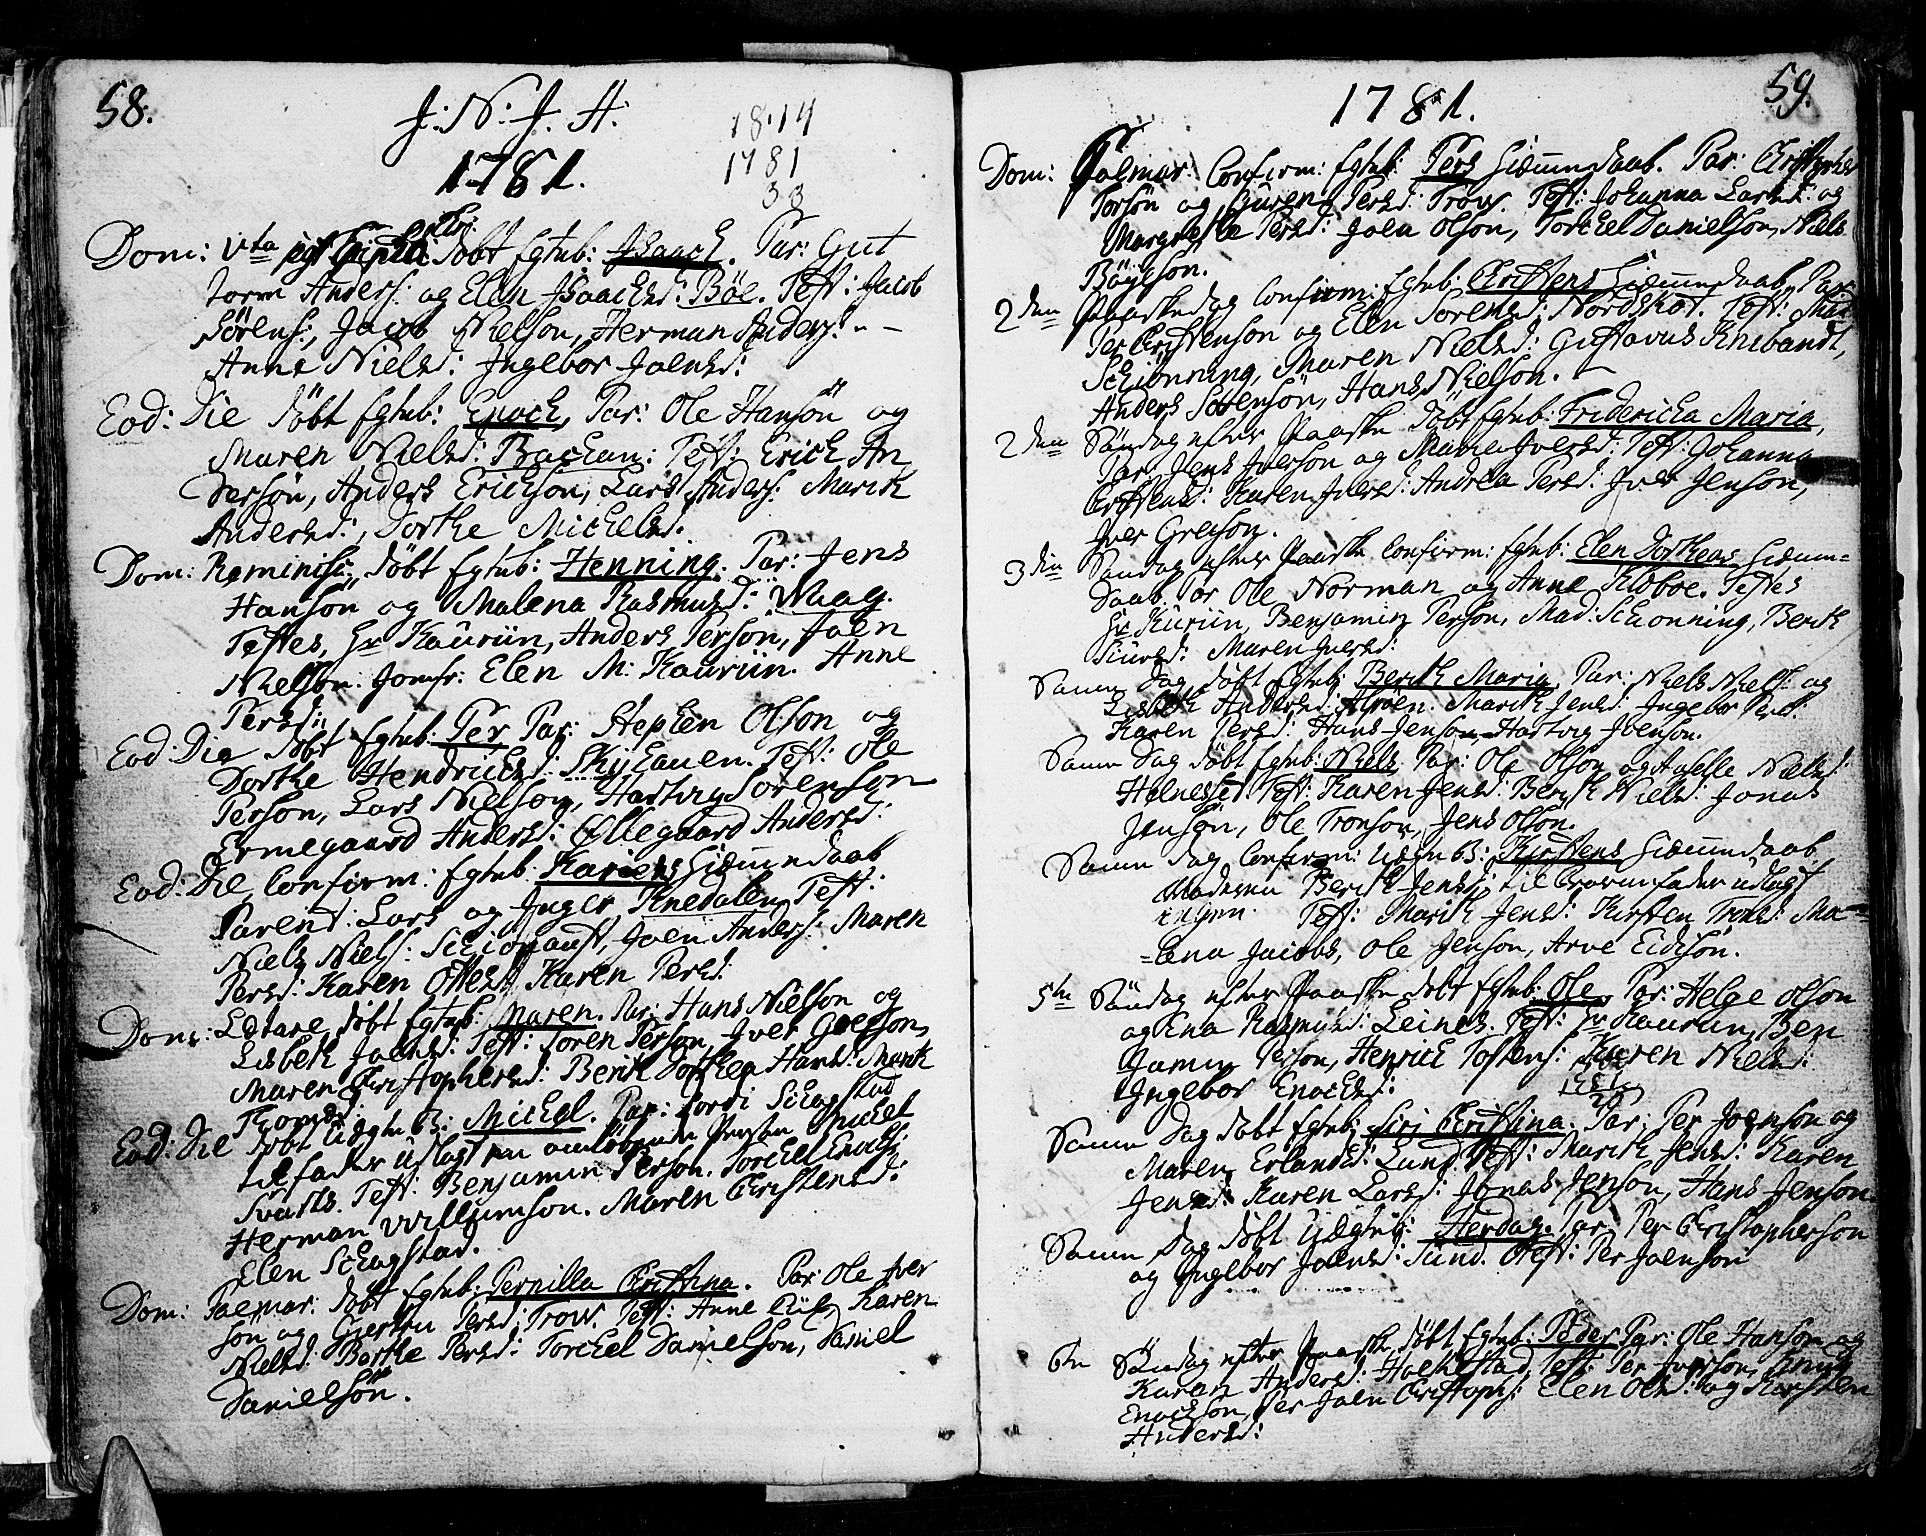 58.
J: N: J: H:
1781.
18.14
1781
33
Dom: Vta post Epiph: døbt Egtub: Isaach. Par: Gut
torm Anders: og Elen Isaachsd: Böe. Test: Jacob
Sörens:, Jacob Nielson, Herman Anders: - -
Anne Nielsd: Ingebor Joensd:
Eod: Die döbt Egtub: Enoch, Par: Ole Hansön og
Maren Nielsd: Bachan: Test: Erich An
dersön, Anders Erichson, Lars Anders: Marith
Andersd:, Dorthe Michelsd.
Dom: Reminisc: döbt Egtub: Henning. Par: Jens
Hanson og Malena Rasmusd: Waag.
Testes, Hr Kaurin, Anders Person, Joen
Nielson. Jomfr: Elen M: Kauriin. Anne
Persd:
Eod: Die döbt Egtub: Per, Par: Stephen Olson og
Dorthe Hendrichsd: Skyhauen. Test: Ole
Person, Lars Nielson, Hartvig Sörenson
Ermegaard Andersd: Øllegaard Andersd:
Eod: Die, Confirm: Egtub: Karens Hiemmedaab
Parent: Lars og Inger Knedalen, Test:
Niels Niels: Joen Anders: Maren
Persd: Karen Ottesd: Karen Persd:
Dom: Lætare, döbt Egtub: Maren. Par: Hans Nielson og
Lisbeth Joensd: Test: Toren Person, Jver Gregson,
Maren Christophersd: Berit Dorthea Hansd: Marit
Thomesd:
Eod: Die döbt Uægte B: Michel. Par: Jordi Schagstad
til fader udlagt en omløbende Person Michel
Svarts. Test: Benjamin Person. Torchel Enochs:
Herman Willumson. Maren Christensd:
Elen Schagstad.
Dom: Palmar: döbt Egtub: Pernilla Christina. Par: Ole Iver
sön og Giertru Persd: Trow. Test: Anne Karen
Nielsd: Berthe Persd: Torchel Danielson, Daniel
Danielsön.
59.
1781.
Dom: Palmar: Confirm: Egtub: Pers Hiemmedaab. Par: Christopher
Torsön og Guren Persd: Trow. Test: Johanna Larsd: og
Margrethe Persd: Joen Olson, Torchel Danielson, Niels
Böyeson.
2den Paaskedag Confirm: Egtub: Christens Hiemmedaab, Par:
Per Christenson og Elen Sörensd: Nordskot. Test: Mad:
Schiönning, Maren Nielsd: Gustavus Knibandt,
Anders Sörensön, Hans Nielson. -
2den Söndag efter Paaske döbt Egtub: Fridericha Maria,
Par: Jens Iverson og Maria Iversd: Test: Johanna
Christensd: Karen Iversd: Andrea Persd: Iver Jenson,
Iver Gregson.
3die Söndag efter Paaske Confirm: Egtub: Elen Dortheas Hiemme-
daab Par Ole Norman og Anne Kloboe. Testes
Hr Kuriin, Benjamin Person, Mad: Schonning, Berith
Siursd: Maren Iversd:
Samme Dag döbt Egtub: Berith Maria. Par: Niels Niels: og
Lisbeth Andersd: Alpöen. Marith Jensd: Ingebor Persd:
Karen Persd: Hans Jenson, Hartvig Joenson.
Samme Dag döbt Egtub: Niels, Par: Ole Olson og Anselle Nielsd:
Helnesset. Test: Karen Jensd: Berith Nielsd: Jonas
Jenson, Ole Tronson, Jens Olson.
Samme Dag Confirm: Uægte B: Kirstens Hiemmedaab
Moderen Berith Jensd: til Barnefader udlagt
ingen. Test: Marith Jensd: Kirsten Tronsd: Ma-
-lena Jacobs, Ole Jenson, Arve Eidisön.
5te Söndag efter Paaske döbt Egtub: Ole, Par: Helge Olson
og Ena Rasmusd: Leines. Test: Hr Kaurin, Ben
jamin Person, Henrich Tostens: Karen Nielsd:
Ingebor Enochsd:
Samme Dag döbt Egtub: Siri Christina. Par: Per Joenson og
Maren Erlandsd: Lund. Test: Marith Jensd: Karen
Jensd: Karen Larsd: Jonas Jenson, Hans Jenson.
Samme Dag döbt Uægtub: Herdag. Par: Per Christopherson
og Ingebor Joensd: Sund. Test: Per Joenson
6te Söndag efter Paaske döbt Egtub: Peder Par: Ole Hanson og
Karan Andersd: Holchestad, Test: Per Iverson, Knud
Enochson, Per Joen Christophs: Elen Olsd: og Kirsten
Andersd: